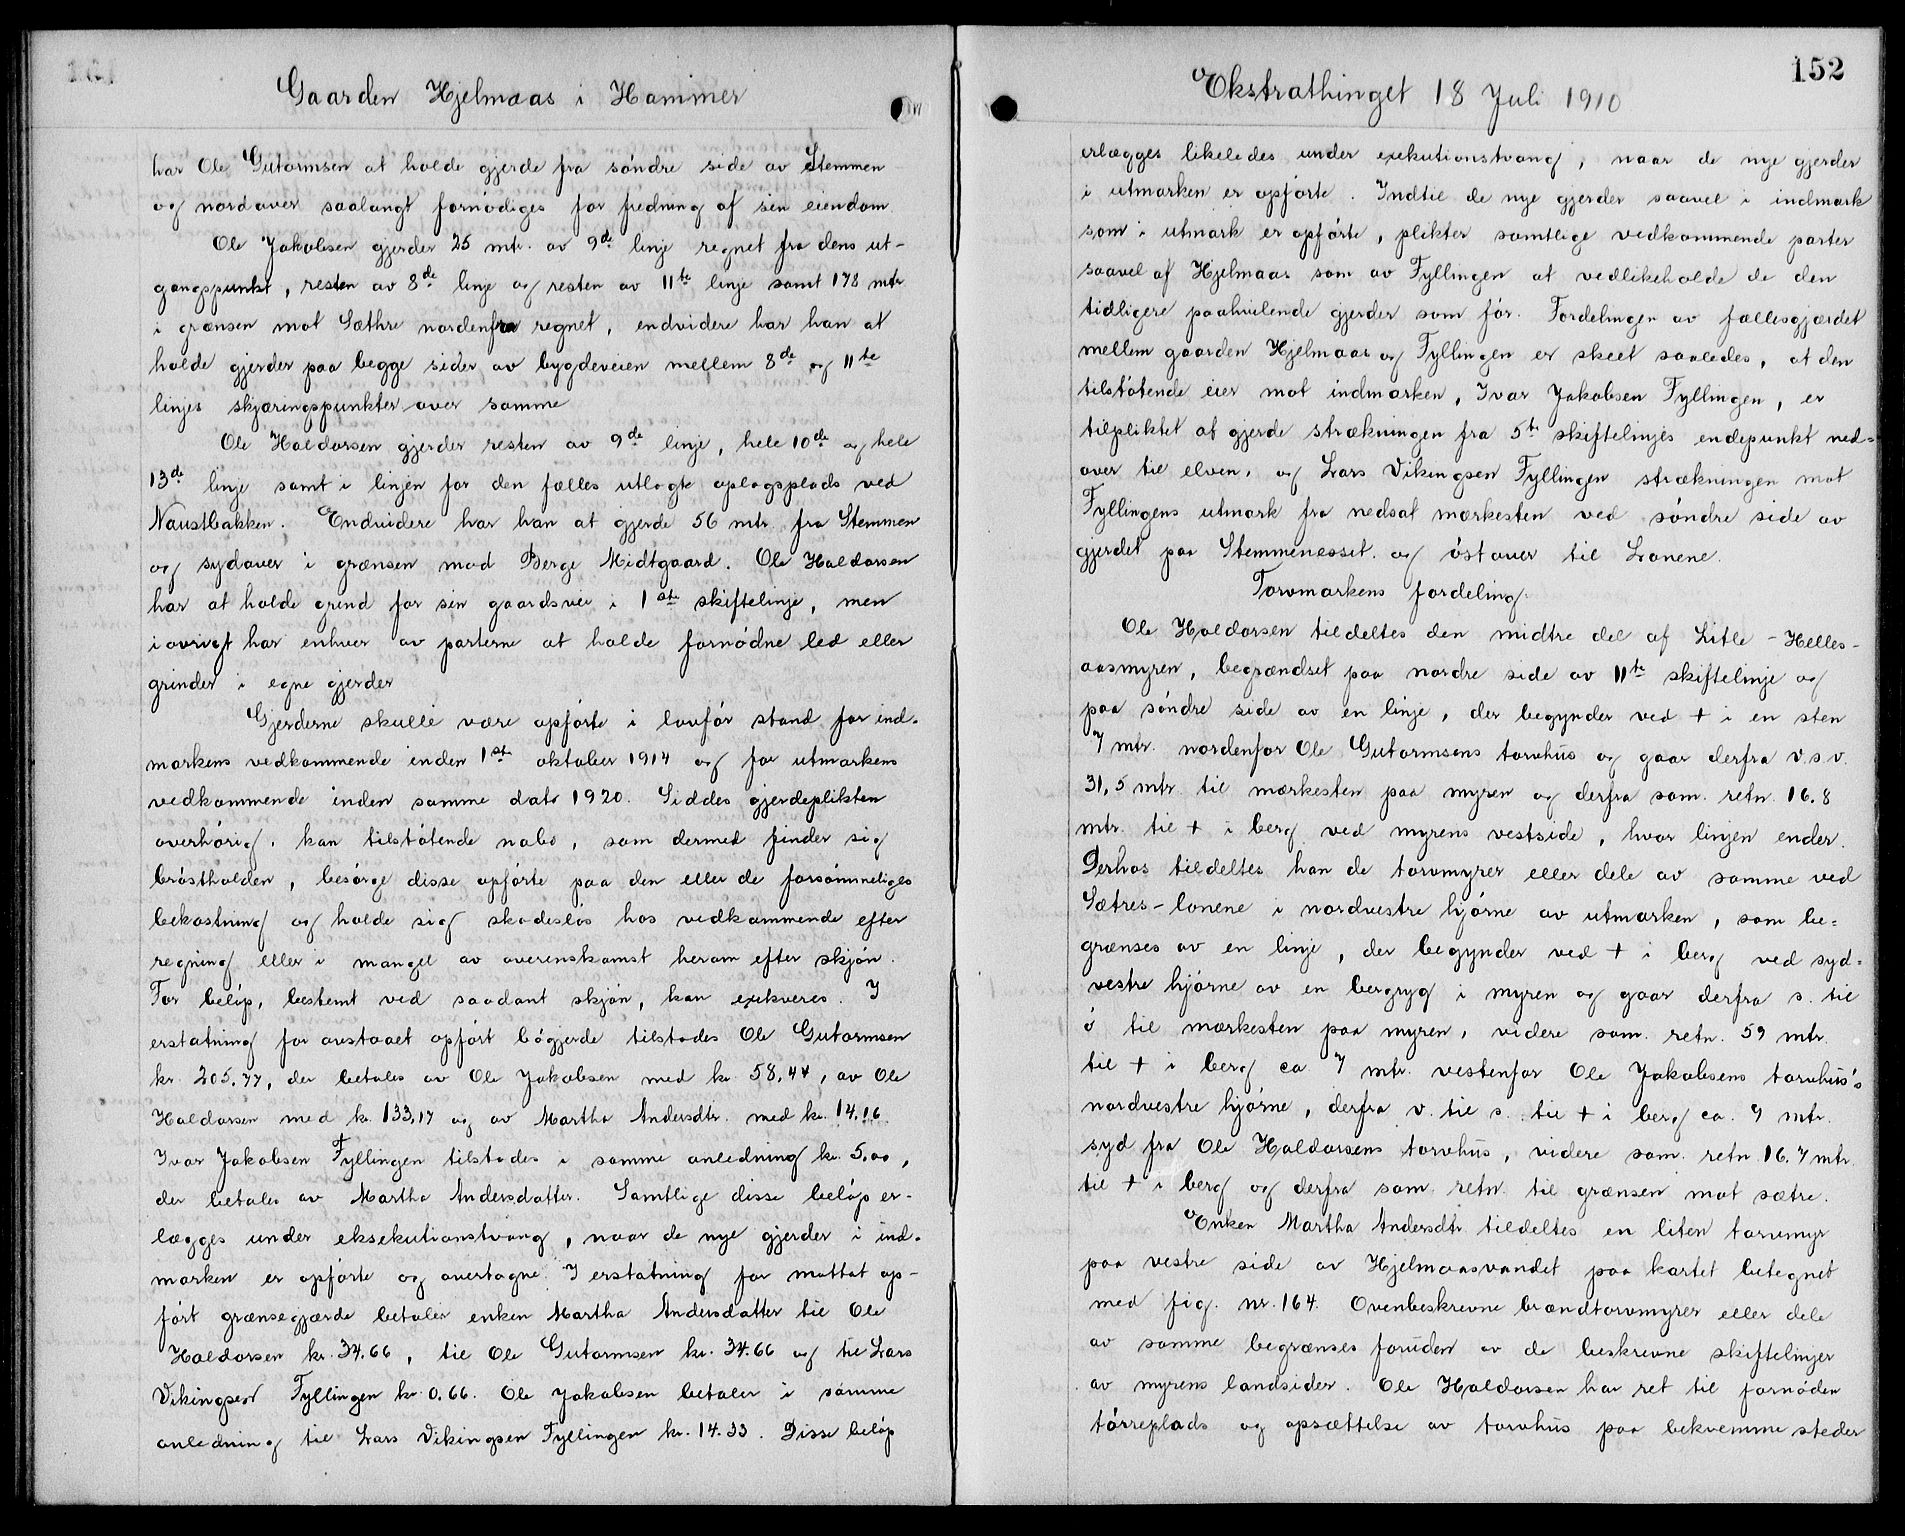 Gaarden Hjelmaas i Hammer
har Ole Gutormsen at holde gjerde fra søndre side av Stemmen
og nordover saalangt fornødiges for fredning af sin eiendom
Ole Jakobsen gjerder 25 mtr. av 9de linje regnet fra dens ut-
gangspunkt, resten av 8de linje og resten av 11te linje samt 178 mtr
i grænsen mot Sæthre nordenfra regnet, endvidere har han at
holde gjerder paa begge sider av bygdeveien mellem 8de og 11te
linjes skjæringspunkter over samme
Ole Haldorsen gjerder resten av 9de linje, hele 10de og hele
13de linje samt i linjen for den fælles utlagte oplagsplads ved
Naustbakken. Endvidere har han at gjerde 56 mtr. fra Stemmen
og sydover i grænsen mod Berge Midtgaard. Ole Haldorsen
har at holde grind for sin gaardsvei i 1ste skiftelinje, men
iøvrigt har enhver av parterne at holde fornødne led eller
grinder i egne gjerder
Gjerderne skulle være opførte i lovfør stand for ind-
markens vedkommende inden 1st oktober 1914 og for utmarkens
vedkommende inden samme dato 1920. Siddes gjerdeplikten
overhørig, kan tilstøtende nabo, som dermed finder sig
brøstholden, besørge disse opførte paa den eller de forsømmeliges
bekostning og holde sig skadesløs hos vedkommende efter
regning eller i mangel av overenskomst herom efter skjøn.
For beløp, bestemt ved saadant skjøn, kan exekveres. I
erstatning for avstaaet opført bøgjerde tilstodes Ole Gutormsen
kr. 205,77, der betales av Ole Jakobsen med kr. 58,44, av Ole
Haldorsen med kr. 133,17 og av Martha Andersdtr. med kr. 14.16
Ivar Jakobsen Fyllingen tilstodes i samme anledning kr. 5,00,
der betales av Martha Andersdatter. Samtlige disse beløp er-
lægges under eksekutionstvang, naar de nye gjerder i ind-
marken er opførte og overtagne. I erstatning for mottat op-
ført grænsegjærde betaler enken Martha Andersdatter til Ole
Haldorsen kr. 34.66, til Ole Gutormsen kr. 34.66 og til Lars
Vikingsen Fyllingen kr. 0.66. Ole Jakobsen betaler i samme
anledning til Lars Vikingsen Fyllingen kr. 14.33. Disse beløp
Ekstrathinget 18 Juli 1910
152
erlægges likeledes under exekutionstvang, naar de nye gjerder
i utmarken er opførte. Indtil de nye gjerder saavel i indmark
som i utmark er opførte, plikter samtlige vedkommende parter
saavel af Hjelmaas som av Fyllingen at vedlikeholde de den
tidligere paahvilende gjerder som før. Fordelingen av fællesgjærdet
mellem gaarden Hjelmaas og Fyllingen er skeet saaledes, at den
tilstøtende eier mot indmarken, Ivar Jakobsen Fyllingen, er
tilpliktet at gjerde strækningen fra 5te skiftelinjes endepunkt ned=
over til elven, og Lars Vikingsen Fyllingen strækningen mot
Fyllingens utmark fra nedsat merkesten ved søndre side av
gjerdet paa Stemmenesset og østover til Lonene.
Torvmarkens fordeling.
Ole Haldorsen tildeltes den midtre del af Litle-Helles-
aasmyren, begrændset paa nordre side av 11te skiftelinje og
paa søndre side av en linje, der begynder ved + i en sten
7 mtr. nordenfor Ole Gutormsens torvhus og gaar derfra v.s.v.
31,5 mtr. til mærkesten paa myren og derfra sam. retn. 16.8
mtr. til + i berg ved myrens vestside, hvor linjen ender.
Derhos tildeltes han de torvmyrer eller dele av samme ved
Sætres-lonene i nordvestre hjørne av utmarken, som be=
grænses av en linje, der begynder ved + i berg ved syd=
vestre hjørne av en bergryg i myren og gaar derfra s. til
ø til mærkesten paa myren, videre sam. retn. 59 mtr.
til + i berg ca 7 mtr. vestenfor Ole Jakobsens torvhus's
nordvestre hjørne, derfra v. til s. til + i berg ca. 9 mtr.
syd fra Ole Haldorsens torvhus, videre sam. retn. 16.7 mtr.
til + i berg og derfra sam. retn. til grænsen mot sætre.
Enken Martha Andersdtr. tildeltes en liten torvmyr
paa vestre side av Hjelmaasvandet paa kartet betegnet
med fig. nr. 164. Ovenbeskrevne brændtorvmyrer eller dele
av samme begrænses foruden av de beskrevne skiftelinjer
av myrens landsider. Ole Haldorsen har ret til fornøden
tørreplads og opsættelse av torvhus paa bekvemme steder